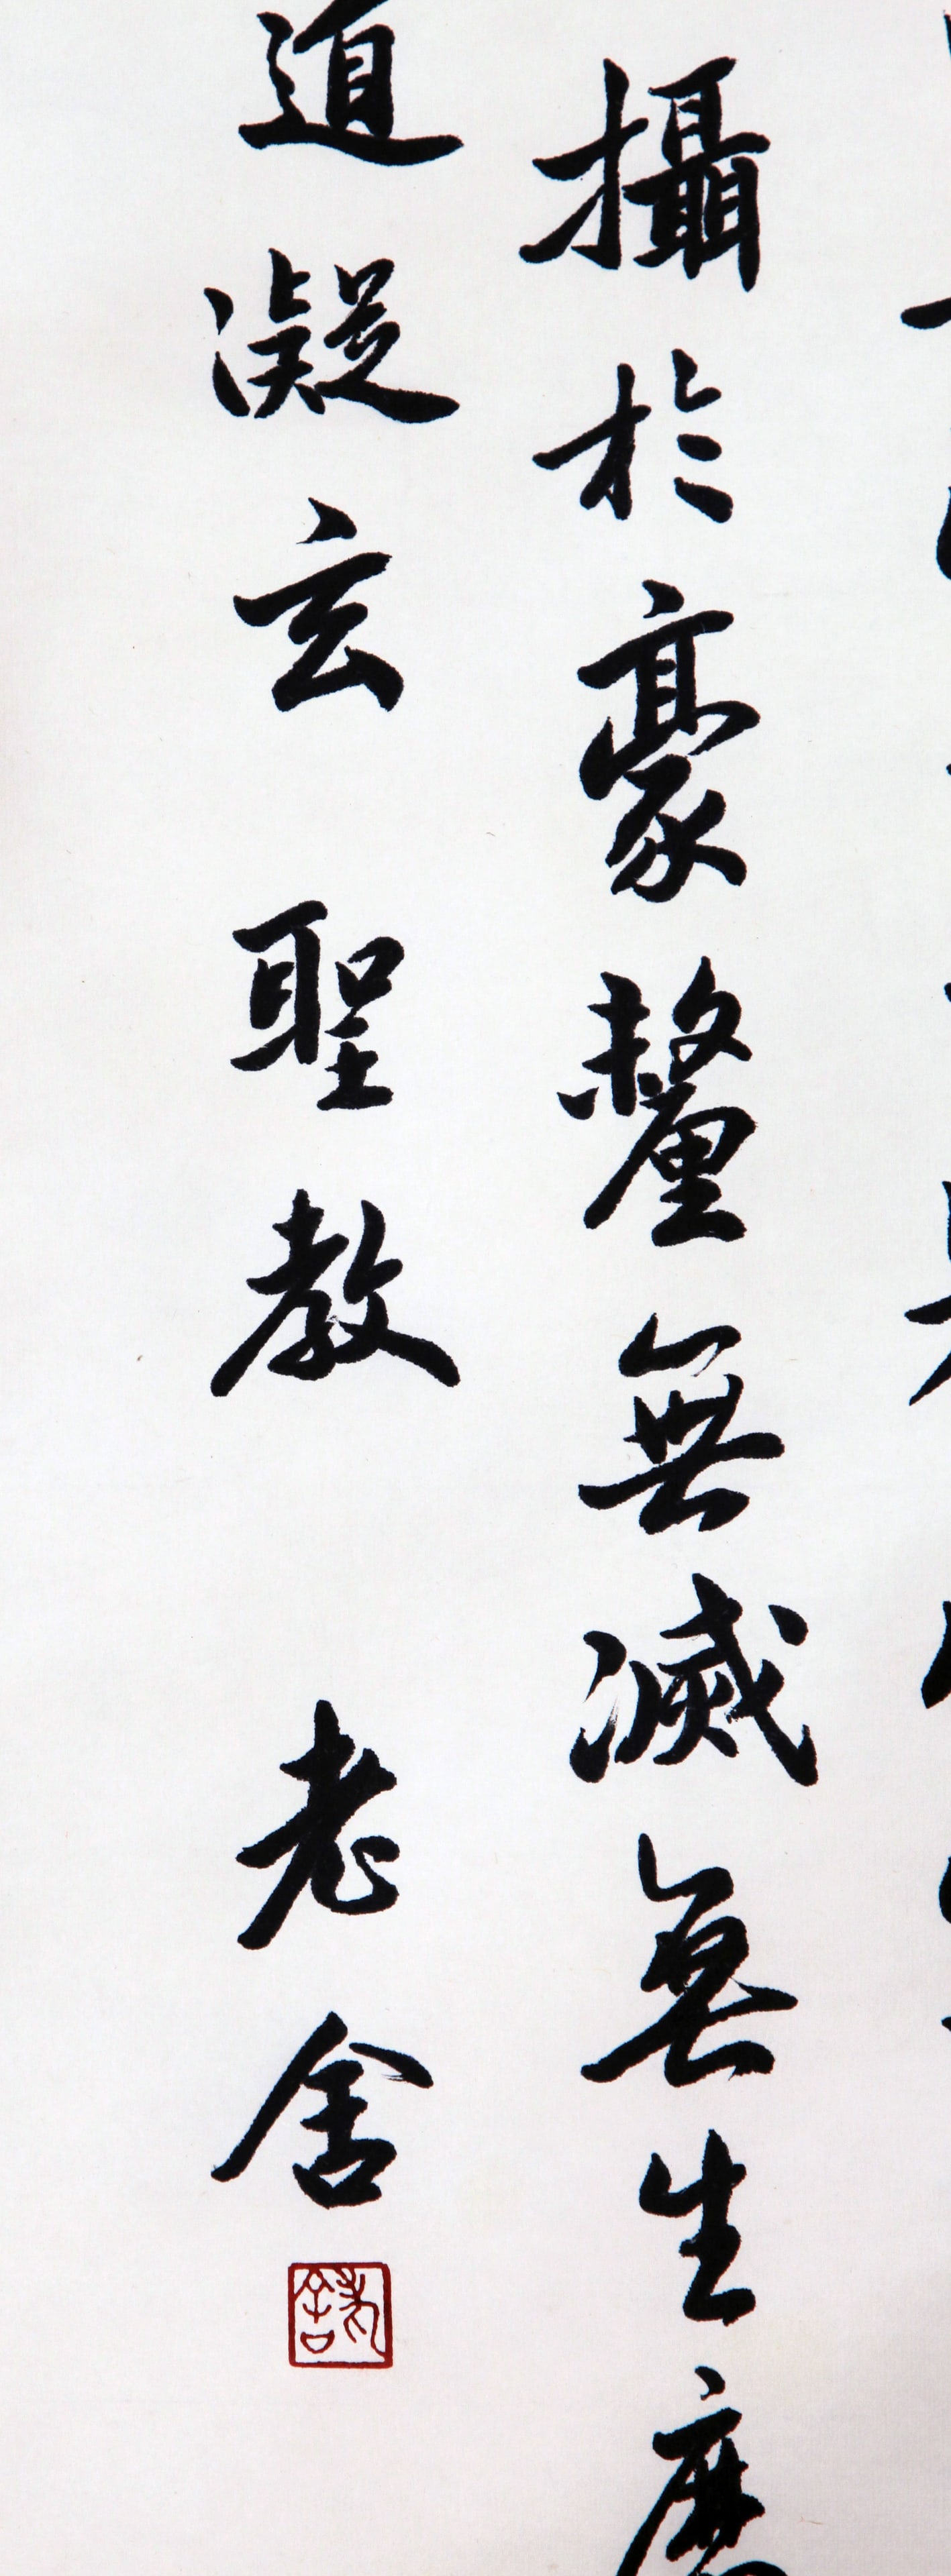 攝於豪釐無滅無生歷
道凝玄聖教老舍
老舍